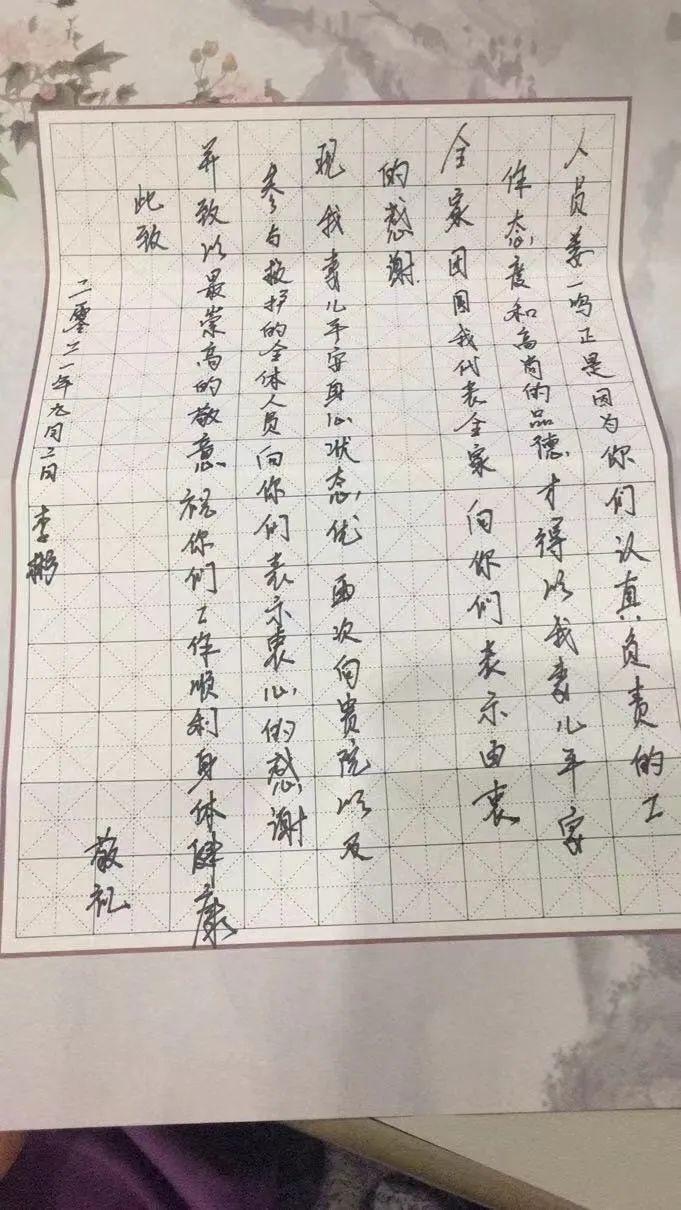 人员姜一鸣正是因为你们认真负责的工
作态度和高尚的品德才得以我妻儿平家
全家团圆我代表全家向你们表示由衷
的感谢
现我妻儿平安身心状态优再次向贵院以及
参与救护的全体人员向你们表示衷心的感谢
并致以最崇高的敬意祝你们工作顺利身体健康
此致
敬礼
二零二一年九月二日 李